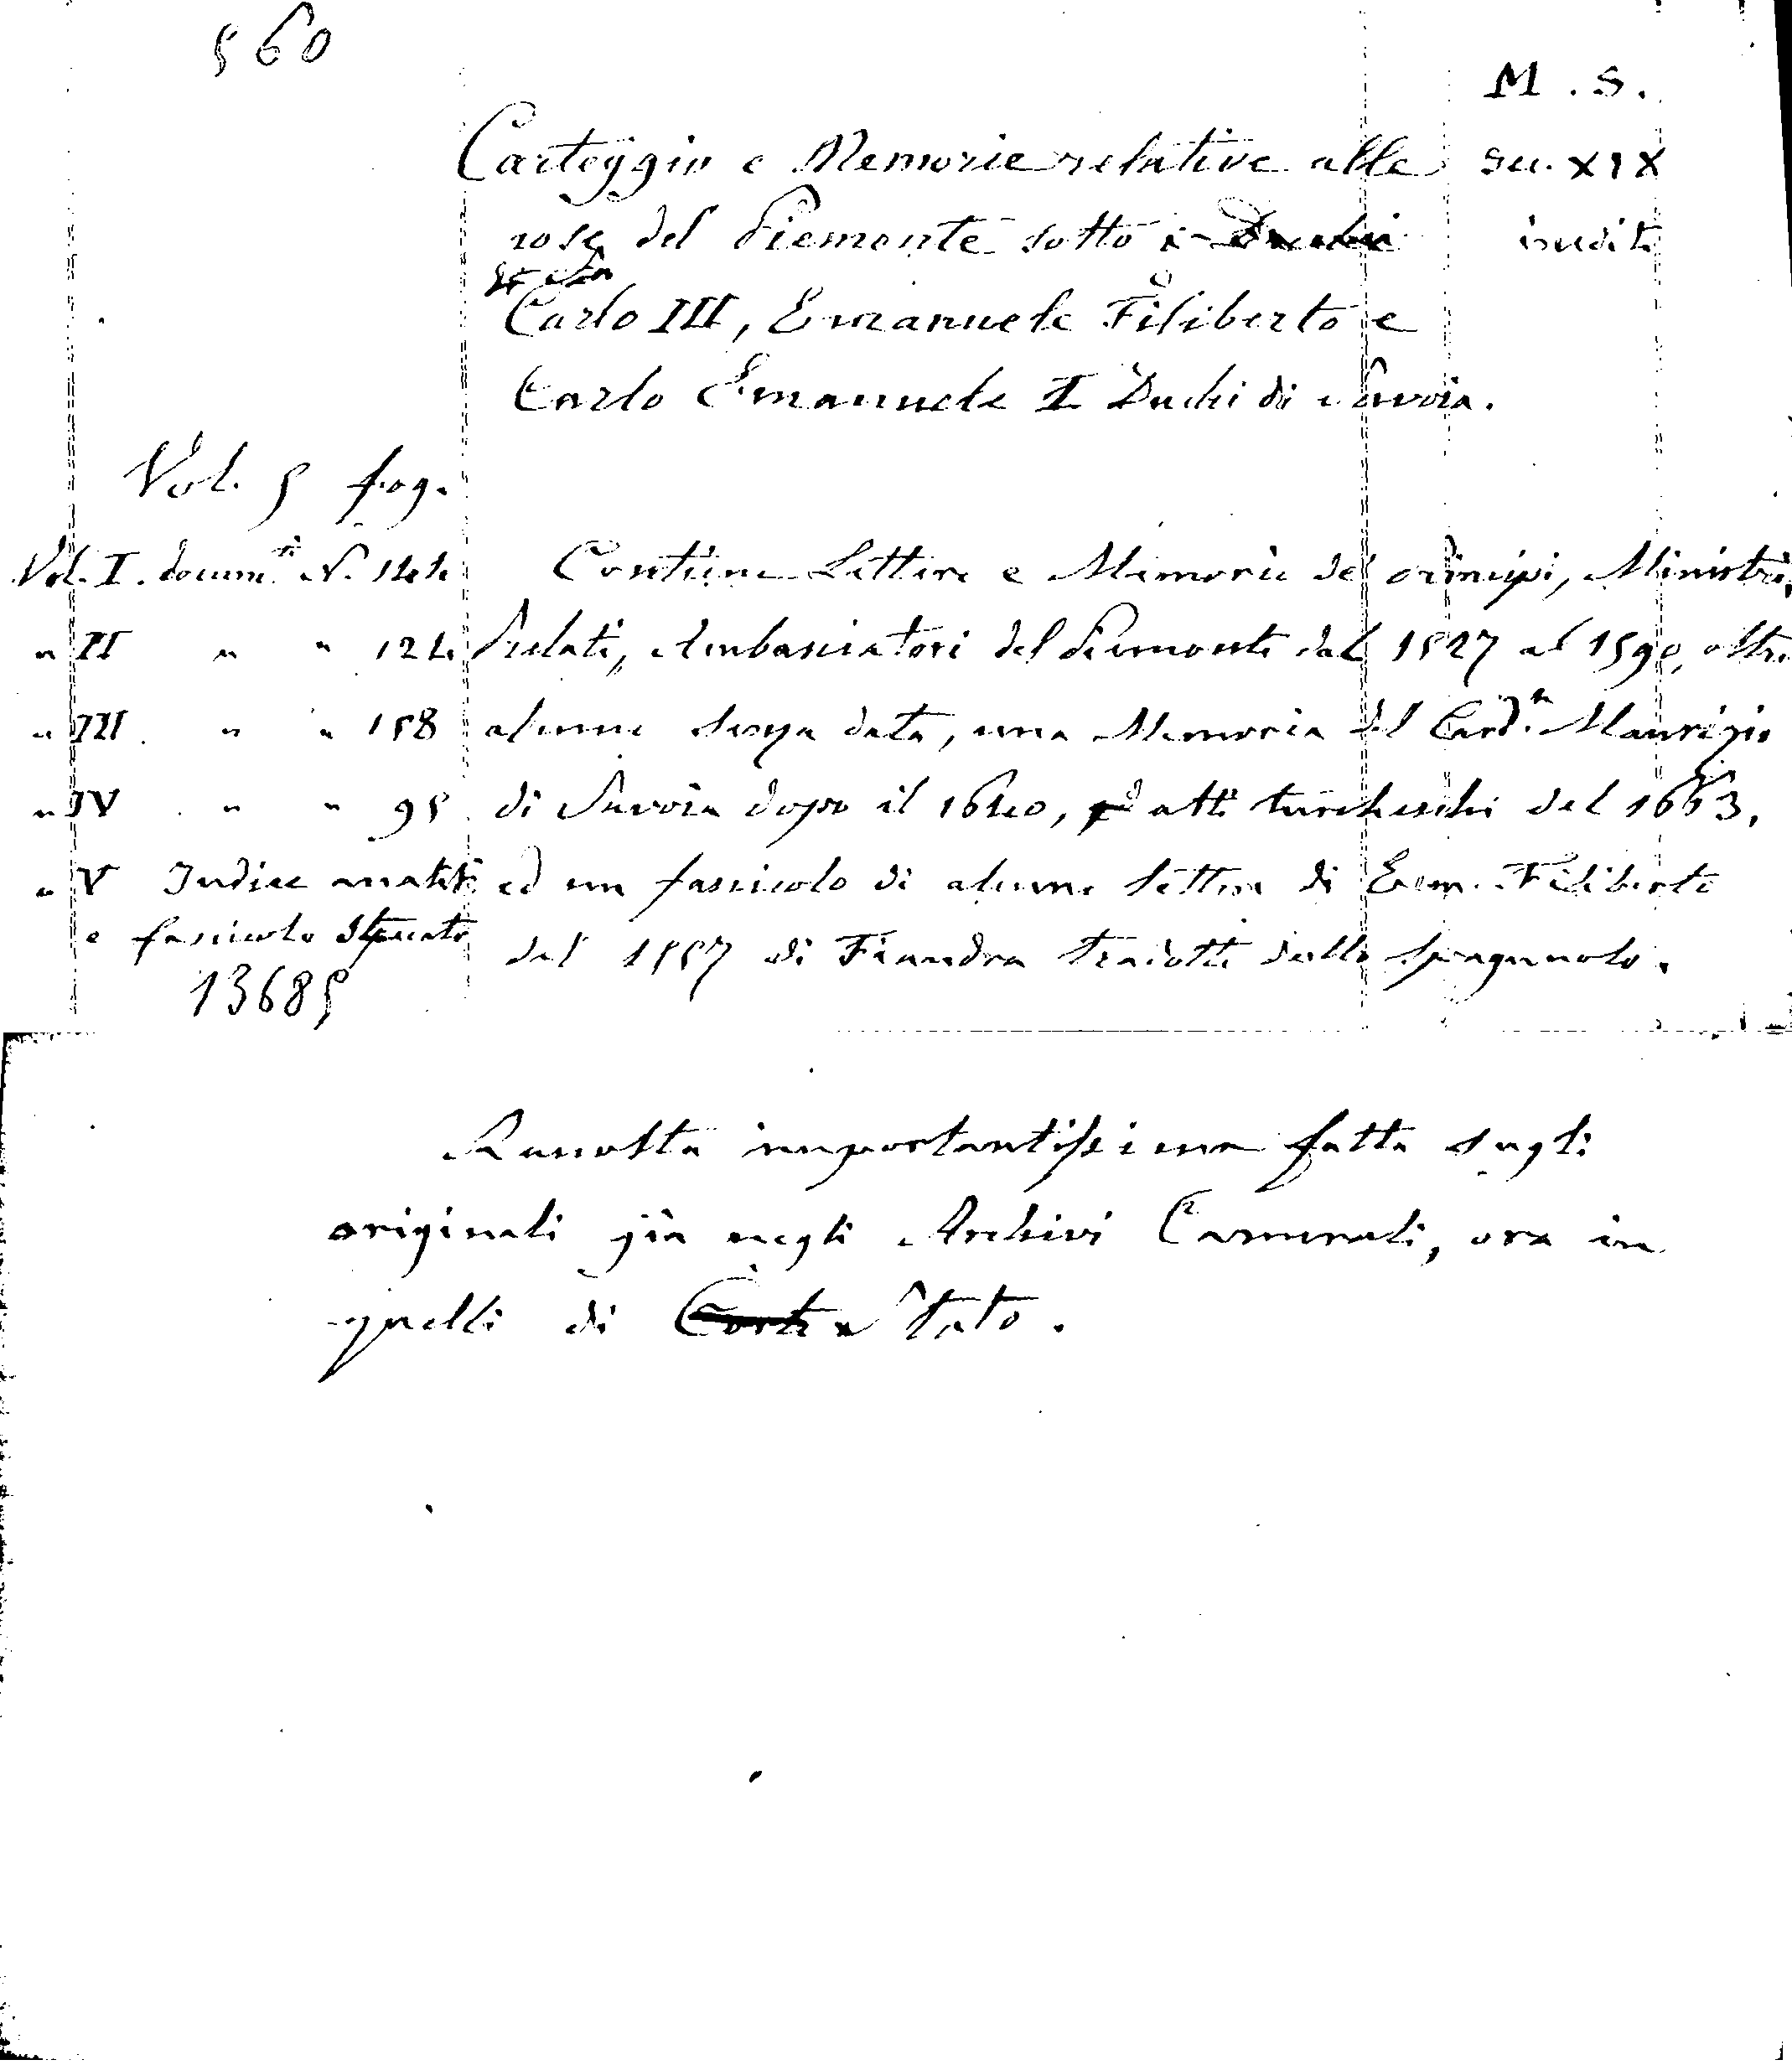 560
M. S.
Carteggio e Memorie relative alle sec. XIX
cose del Piemonte sotto i Duchi inedite
Carlo III, Emanuele Filiberto e
Carlo Emanuele I Duchi di Savoia.
Vol. 5 fog.
Vol. I. docum.ti N. 144 Contiene Lettere e Memorie dei principi, Ministri,
" II " " 124 Prelati, Ambasciatori del Piemonte dal 1527 al 1590, oltre
" III " " 158 alcune senza data, una Memoria del Card.le Maurizio
" IV " " 95 di Savoia dopo il 1640, atti turcheschi del 1663,
" V Indice analit. ed un fascicolo di alcune lettere di Em. Filiberto
e fascicolo staccato del 1557 di Fiandra tradotte dallo spagnuolo.
13685
Raccolta importantissima fatta sugli
originali già negli Archivi Camerali, ora in
quelli di Corte Stato.